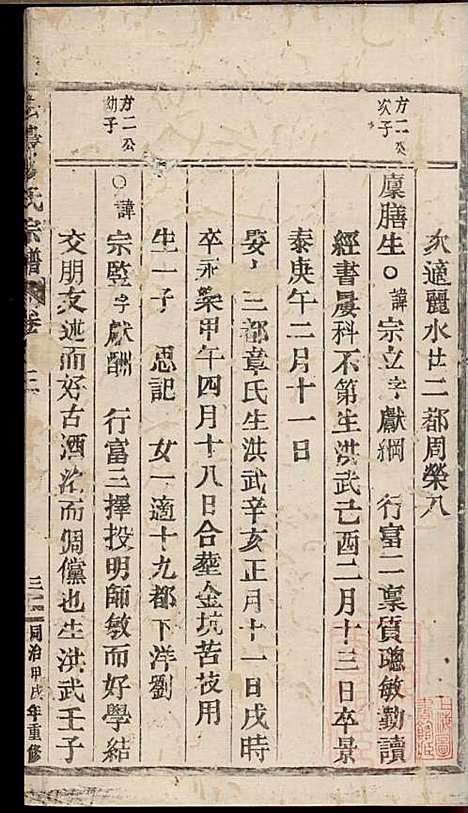 方二公
次子
方二公
幼子
次適麗水廿二都周榮八
廩膳生○諱宗立字獻綱 行富二稟質聰敏勤讀
經書屢科不第生洪武己酉二月十三日卒景
泰庚午二月十一日
娶 三都章氏生洪武辛亥正月十一日戌時
卒永樂甲午四月十八日合塟金坑苦技用
生一子 思記 女一適十九都下洋劉
○諱宗監字獻酬 行富三擇投明師敏而好學結
交朋友述而好古酒 而倜儻也生洪武壬子
氏宗譜 卷 三
三 同治甲戌年重修